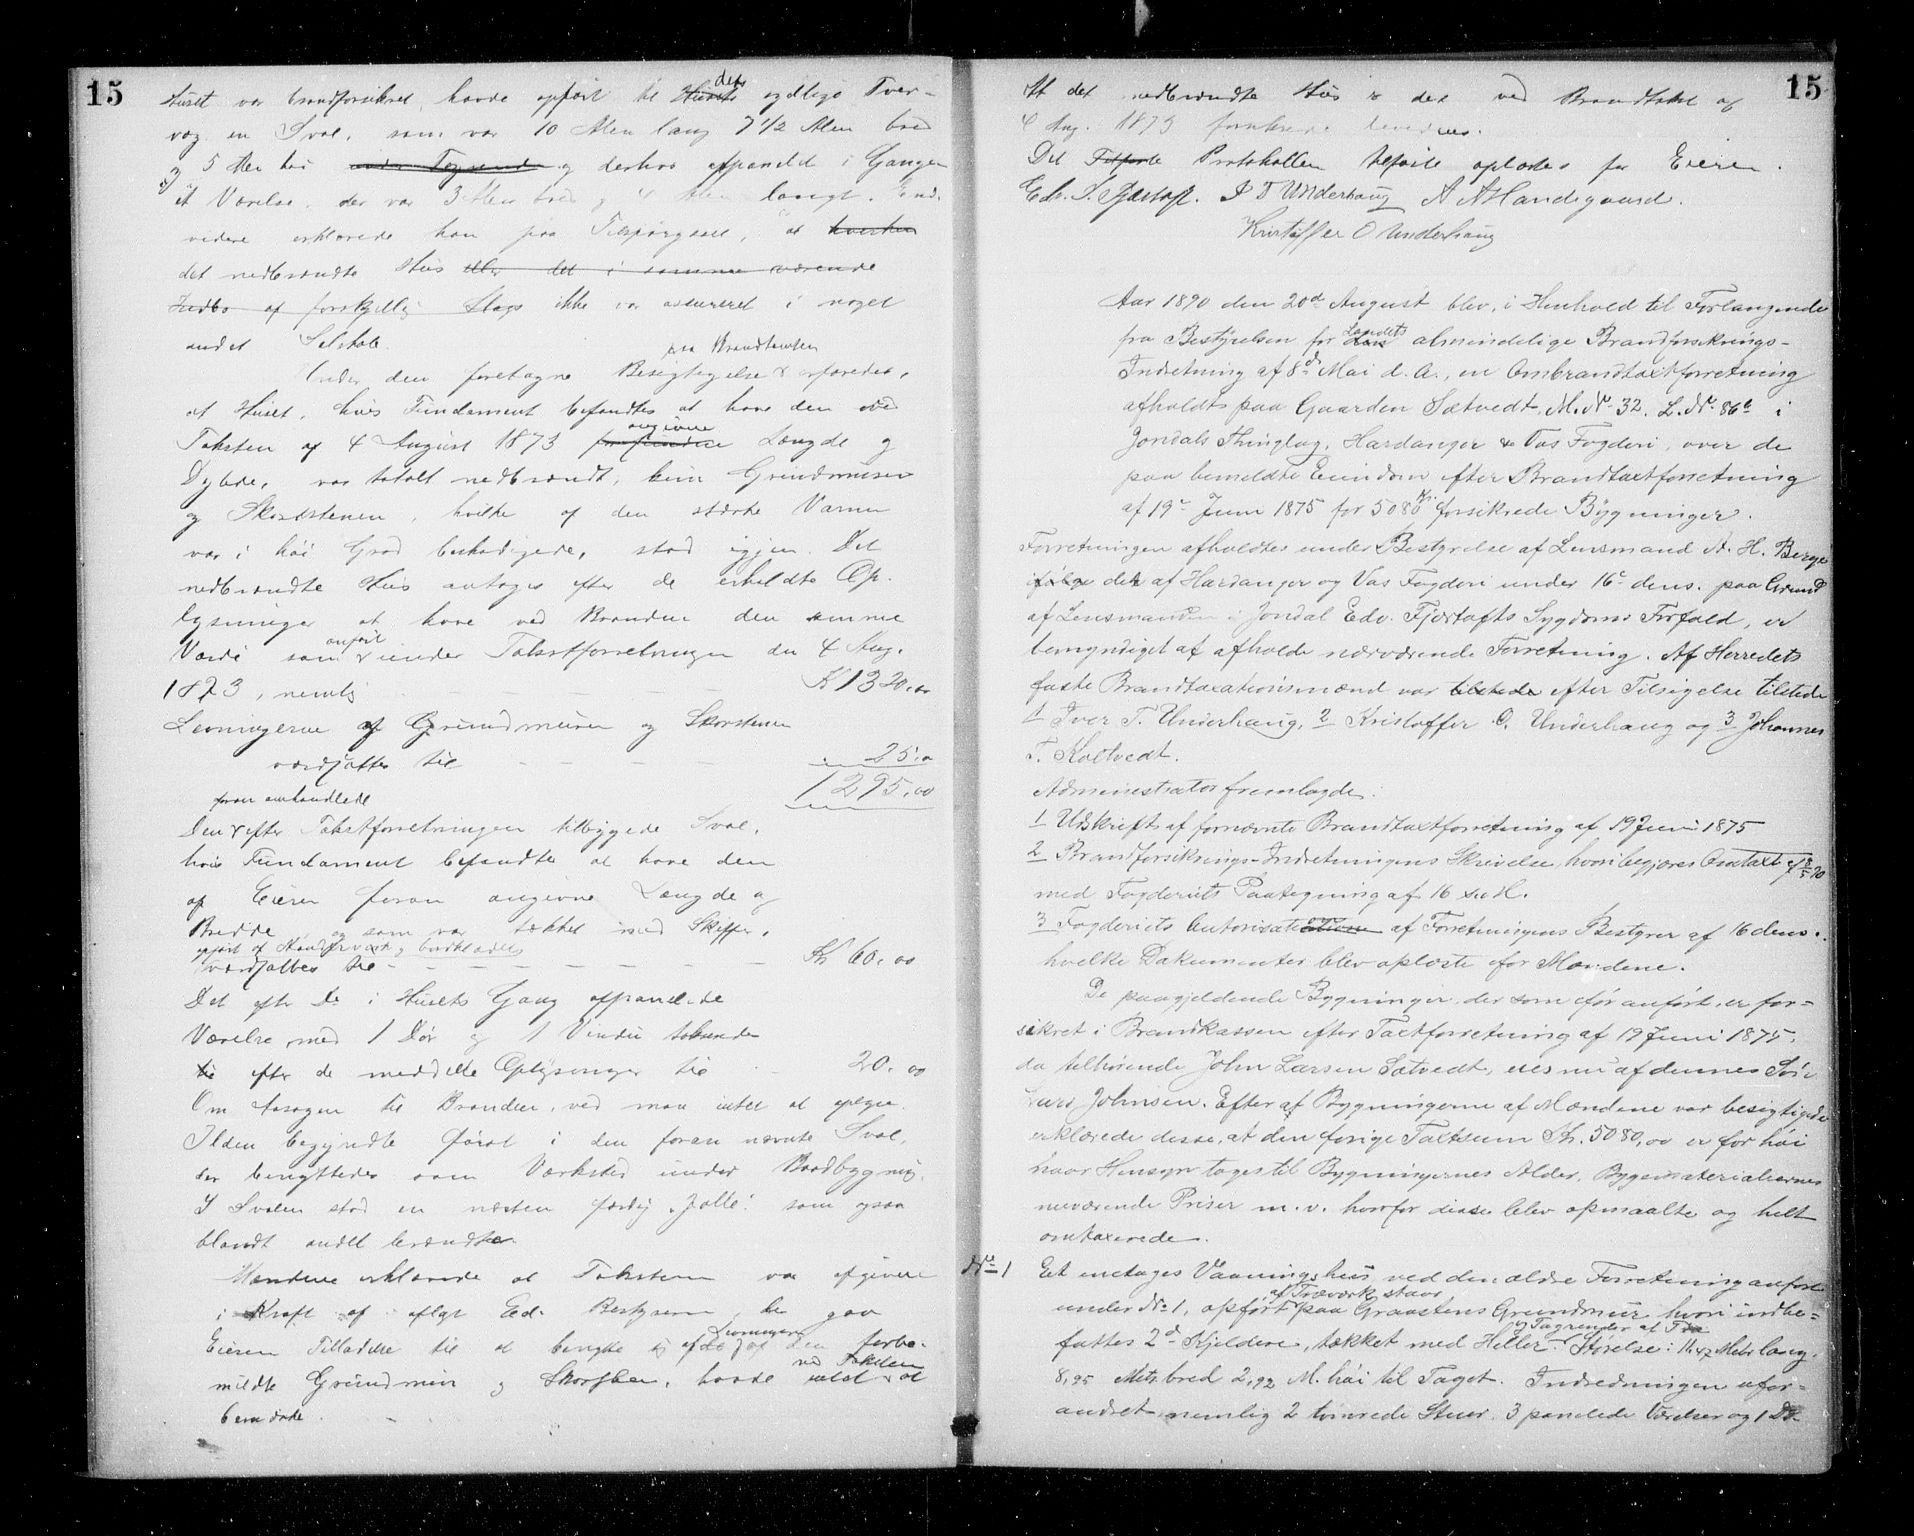 15
Huset var brandforsikret, havde opført til Husets det sydlige Tver-
væg en Sval, som var 10 Alen lang 7 1/2 Alen bred
og 5 Alen høi og derhos afpanelet i Gangen
et Værelse, der var 3 Alen bred og 4 Alen langt. End-
videre erklærede han paa Tilspørgsel, at hverken
det nedbrændte Hus eller det i samme værende
Indbo af forskjellig Slags ikke var assureret i noget
andet Selskab.
Under den foretagne Besigtigelse paa Brandtomten erfaredes,
at Huset, hvis Fundament befandtes at have den ved
Taksten af 4 August 1873 angivne Længde og
Dybde, var totalt nedbrændt, kun Grundmuren
og Skorstenen, hvilke af den stærke Varme
var i høi Grad beskadigede, stod igjen. Det
nedbrændte Hus antages efter de erholdte Op-
lysninger at have ved Branden den samme
Værdi som anført under Takstforretningen den 4 Aug.
1873, nemlig K 1320.00
Levningerne af Grundmuren og Skorstenen
værdsattes til 25.0
1295.00
Den foran omhandlede efter Takstforretningen tilbyggede Sval,
hvis Fundament befandtes at have den
af Eieren foran angivne Længde og
Bredde, og som var tækket med Skiffer,
opført af Standerværk og bordklædt
værdsattes til Kr 60.00
Det efter Do i Husets Gang afpanelede
Værelse med 1 Dør og 1 Vindu
efter de meddelte Oplysninger til 20.00
Om Aarsagen til Branden, ved man intet at oplyse.
Ilden begyndte først i den foran nævnte Sval,
der benyttedes som Værksted under Baadbygning.
I Svalen stod en næsten færdig "Jolle" som ogsaa
blandt andet brændte.
Mændene erklærede at Taksten var afgiven
i Kraft af aflagt Ed. Bestyreren gav
Eieren Tilladelse til at benytte Levningerne af den forbe-
mældte Grundmur og Skorsten, havde ved Taksten intet at
bemærke.
15
At det nedbrændte Hus er det ved Brandtakst af
4 Aug. 1873 forsikrede
Det Protokollen tilførte oplæstes for Eieren.
Edv. S. Fjærtoft. I T Underhaug A A Handegaard.
Kristoffer O Underhaug
Aar 1890 den 20de August blev, i Henhold til Forlangende
fra Bestyrelsen for Landets almindelige Brandforsikrings-
Indretning af 8de Mai d. A., en Ombrandtaxtforretning
afholdt paa Gaarden Sætvedt, M. No 32. L. No 86b i
Jondals Thinglag, Hardanger & Vos Fogderi, over de
paa bemeldte Eiendom efter Brandtaxtforretning
af 19de Juni 1875 for 5080 Kr. forsikrede Bygninger.
Forretningen afholdtes under Bestyrelse af Lensmand A. H. Berge
ifølge det af Hardanger og Vos Fogderi under 16de dens. paa Grund
af Lensmanden i Jondal Edv. Fjærtofts Sygdoms Forfald, er
bemyndiget af afholde nærværende Forretning. Af Herredets
faste Brandtaxationsmænd var tilstede efter Tilsigelse tilstede
1 Iver T. Underhaug, 2 Kristoffer O. Underhaug og 3 Johannes
T. Koltvedt.
Administrator fremlagde:
1 Udskrift af fornævnte Brandtaxtforretning af 19 Juni 1875
2 Brandforsikrings-Indretningens Skrivelse, hvori begjæres Omtaxt af 8/5 90
med Fogderiets Paategning af 16 s. M.
3 Fogderiets Autorisation af Forretningens Bestyrer af 16 dens.,
hvilke Dokumenter blev oplæste for Mændene.
De paagjeldende Bygninger, der som før anført, er for-
sikret i Brandkassen efter Taxtforretning af 19 Juni 1875,
da tilhørende John Larsen Sætvedt, eies nu af dennes Søn
Lars Johnsen. Efter at Bygningerne af Mændene var besigtigede
erklærede disse, at den forige Taxtsum Kr. 5080,00 er for høi
naar Hensyn tages til Bygningernes Alder, Bygematerialernes
nuværende Priser m. v. hvorfor disse blev opmaalte og helt
omtaxerede.
No 1 Et enetages Vaaningshus, ved den ældre Forretning anført
under No 1, opført af Træværk staar paa Graastens Grundmur, hvori indbe-
fattes 2de Kjeldere, tækket med Heller og Tagrender af Træ. Størelse: 11,47 Metr lang,
8,95 Metr. bred 2,92 M. høi til Taget. Indredningen ufor-
andret, nemlig 2 tømrede Stuer, 3 panelede Værelser og 1 Do